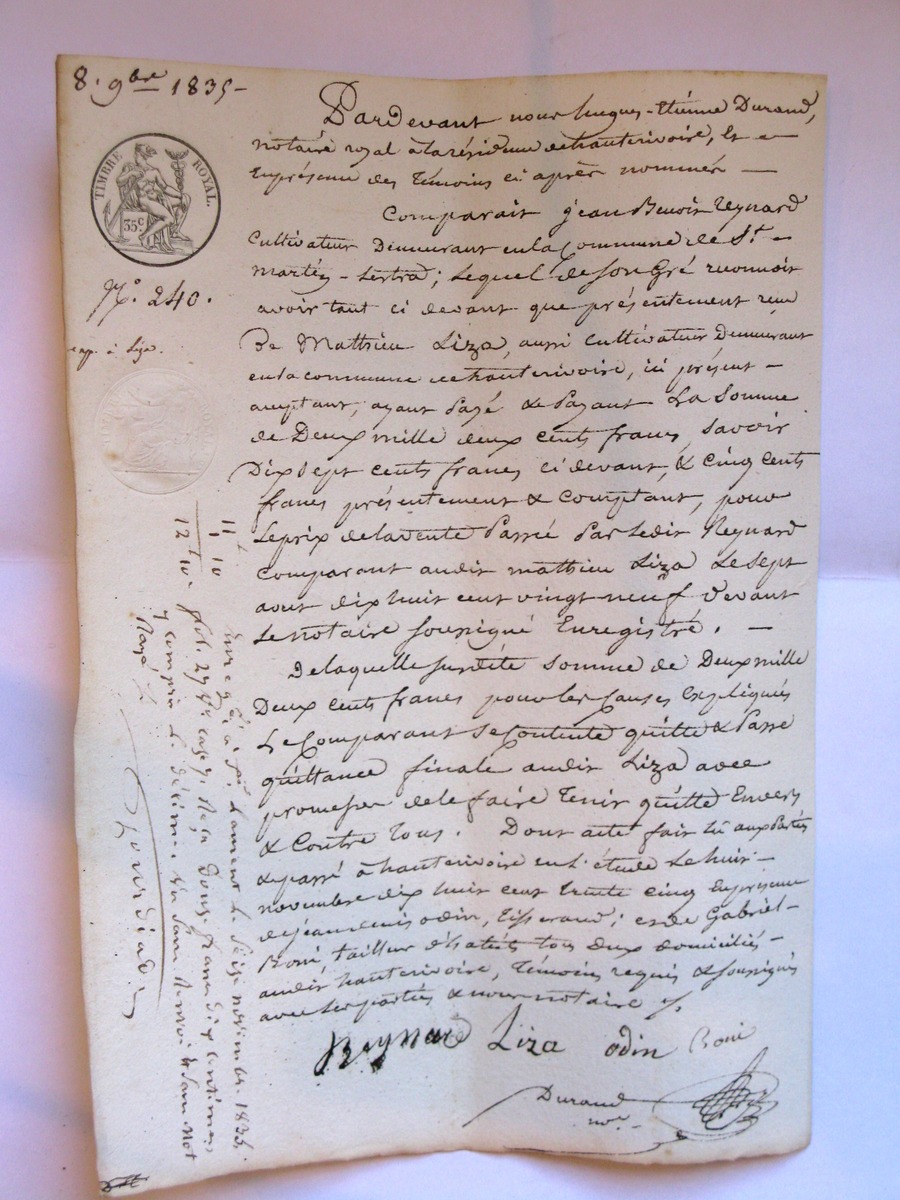 8. 9bre 1835 -
TIMBRE ROYAL.
35c
N.o 240.
exp. à Liza.
Pardevant nous hugues-Etienne Durand,
notaire royal à la résidence de hauterivoire, Et
En présence des Témoins ci après nommés —
Comparait jean Benoit Reynard
Cultivateur Demeurant en la Commune de St
martin-Lestra ; Lequel de son Gré reconnoit
avoir tant ci devant que présentement reçu
De Mathieu Liza, aussi Cultivateur Demeurant
en la commune de hauterivoire, ici présent -
acceptant, ayant Payé & Payant La Somme
de Deux mille deux cents francs, savoir
Dix sept cents francs ci devant, & Cinq Cents
francs présentement & Comptant, pour
Le prix de la vente Passée Par Ledit Reynard
Comparant audit mathieu Liza Le sept
aout dix huit cent vingt neuf Devant
Le notaire soussigné Enregistré. —
De laquelle susdite somme de Deux mille
Deux cents francs pour les Causes Expliquées
Le Comparant se Contente quitte & Passe
quittance finale audit Liza avec
promesse de le faire Tenir quitte Envers
& Contre tous. Dont acte fait lu aux Parties
& passé à hauterivoire en l'étude Le huit -
novembre dix huit cent trente cinq En présence
de jean louis odin, Tisserand ; et de Gabriel -
Roni tailleur d'habits tous deux domiciliés -
audit hauterivoire, Témoins requis & soussignés
avec les parties & nous notaire
Reynard Liza odin Roni
Durand
nre
11 f 10
1
12 f 10
Enreg.é à St Laurent le seize novembre 1835.
fol. 27 Vo case 7. Reçu Douze francs dix centimes
y compris le décime